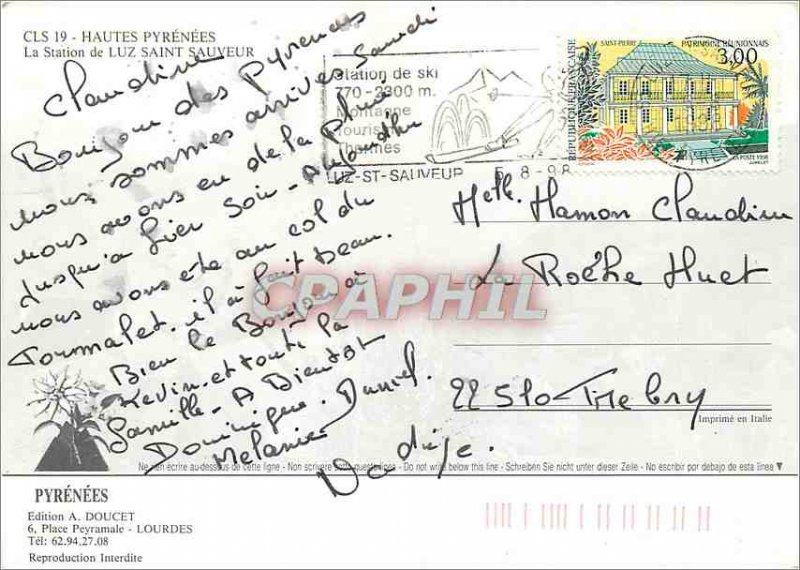 CLS 19 - HAUTES PYRÉNÉES
La Station de LUZ SAINT SAUVEUR
Claudine
Bonjour des Pyrenées
nous sommes arrivés Samedi
nous avons eu de la Pluie
Jusqu'a hier Soir - Aujourd'hui
nous avons été au col du
Tourmalet. il à fait beau.
Bien le Bonjour à
Kevin et toute la
famille - A Bientot
Dominique. Daniel.
Melanie
Nadège.
Station de ski
770-2300 m.
Montagne
Tourisme
Thermes
LUZ-ST-SAUVEUR
5-8-98
SAINT-PIERRE
PATRIMOINE RÉUNIONNAIS
3,00
RÉPUBLIQUE FRANÇAISE
LA POSTE 1998
JUMELET
Melle Hamon Claudine
La Roche Huet
22510 - Trebry
CPAPHIL
Imprimé en Italie
Ne rien écrire au-dessous de cette ligne - Non scrivere sotto questa linea - Do not write below this line - Schreiben Sie nicht unter dieser Zeile - No escribir por debajo de esta linea
PYRÉNÉES
Edition A. DOUCET
6, Place Peyramale - LOURDES
Tél: 62.94.27.08
Reproduction Interdite